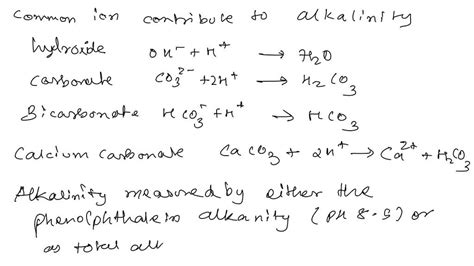 common ion contribute to alkalinity
hydroxide OH⁻ + H⁺ → H₂O
carbonate CO₃²⁻ + 2H⁺ → H₂CO₃
Bicarbonate HCO₃⁻ + H⁺ → HCO₃
Calcium carbonate CaCO₃ + 2H⁺ → Ca²⁺ + H₂CO₃
Alkalinity measured by either the
phenolphthalein alkanity (pH 8.5) or
as total all